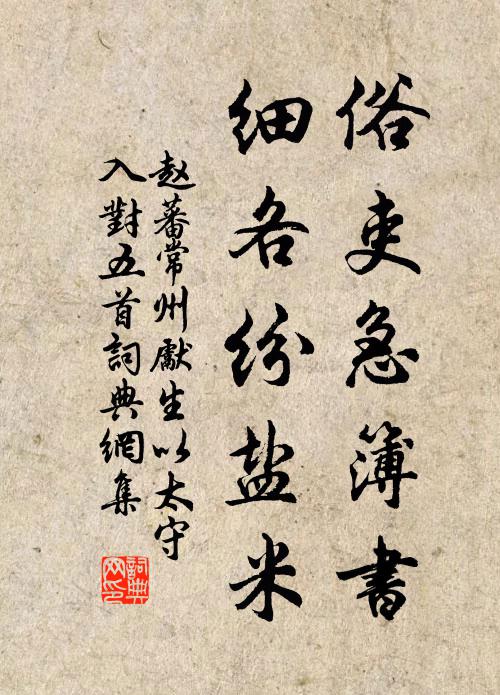 俗吏急簿書
細各纷盐米
赵蕃常州獻生以太守
入對五首詞典網集
詞典
网印